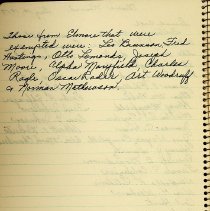 Those from Elmore that were
exempted were: Leo Dawson, Fred
Hastings, Otto Lemonds, Joseph
Moore, Alpha Mansfield, Charles
Ragle, Oscar Rader, Art Woodruff
& Norman Matheson.